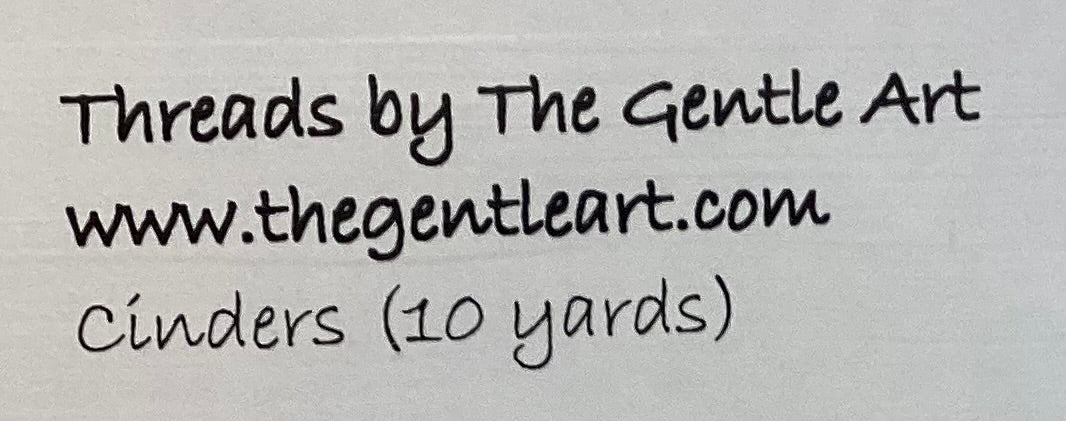 Threads by The Gentle Art
www.thegentleart.com
Cinders (10 yards)